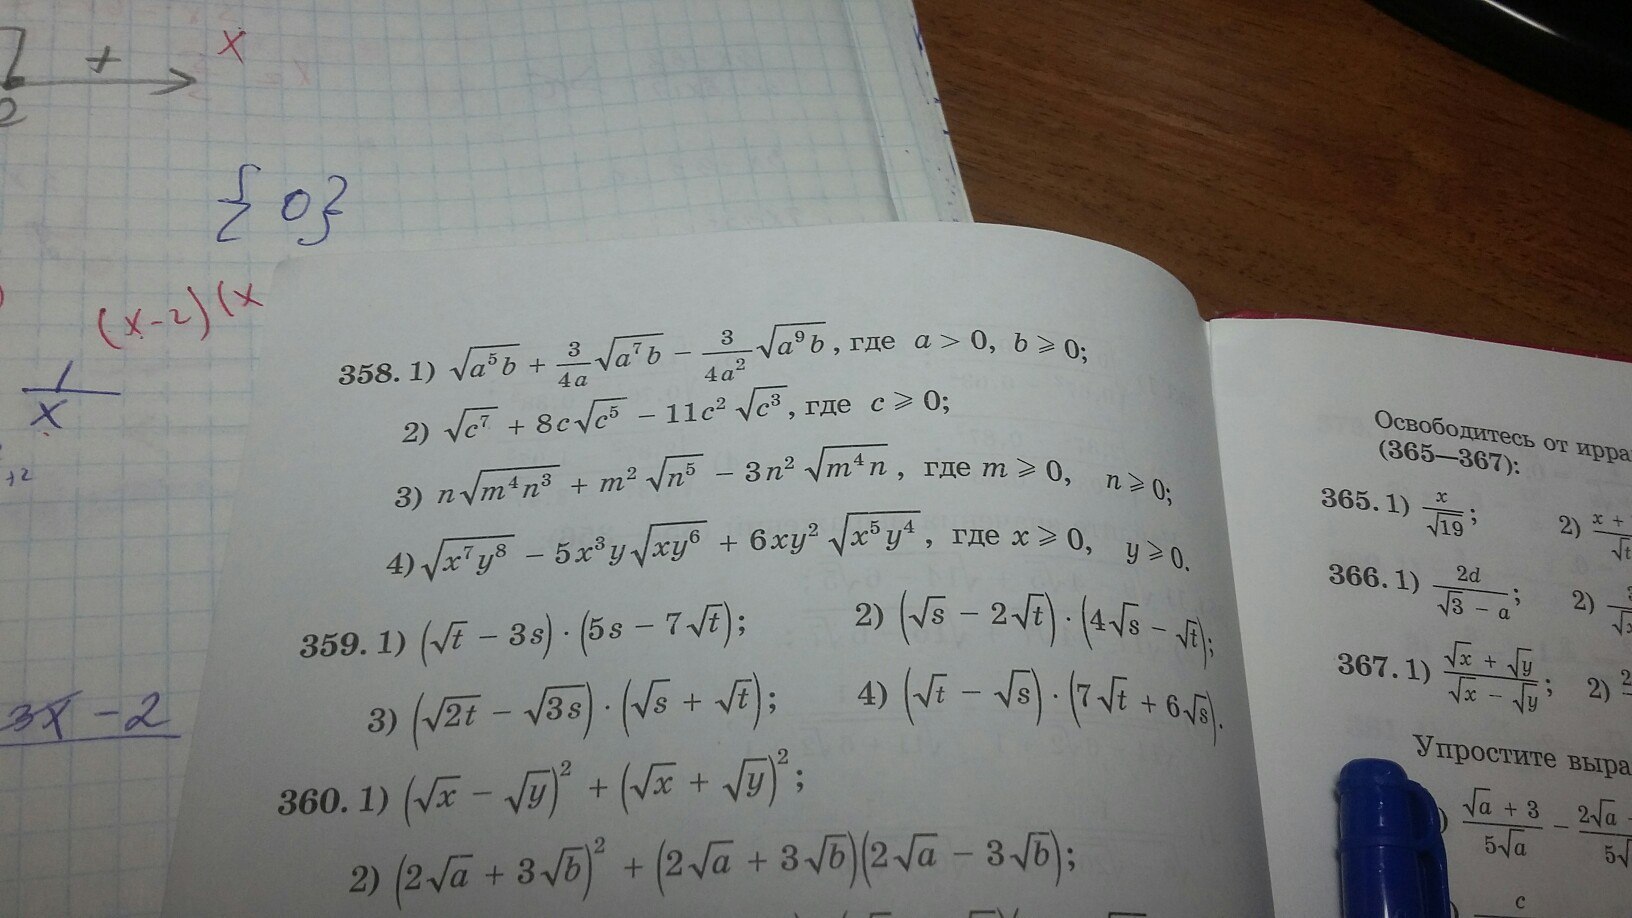 + x
{0}
(x-2)(x
1/x
+2
3x - 2
358. 1) √(a⁵b) + 3/(4a) √(a⁷b) − 3/(4a²) √(a⁹b), где a > 0, b ⩾ 0;
2) √(c⁷) + 8c√(c⁵) − 11c² √(c³), где c ⩾ 0;
3) n√(m⁴n³) + m² √(n⁵) − 3n² √(m⁴n), где m ⩾ 0, n ⩾ 0;
4) √(x⁷y⁸) − 5x³y√(xy⁶) + 6xy² √(x⁵y⁴), где x ⩾ 0, y ⩾ 0.
359. 1) (√t − 3s) · (5s − 7√t); 2) (√s − 2√t) · (4√s − √t);
3) (√(2t) − √(3s)) · (√s + √t); 4) (√t − √s) · (7√t + 6√s).
360. 1) (√x − √y)² + (√x + √y)²;
2) (2√a + 3√b)² + (2√a + 3√b)(2√a − 3√b);
Освободитесь от ирра
(365—367):
365. 1) x/√19; 2) x +
366. 1) 2d/(√3 − a); 2)
367. 1) (√x + √y)/(√x − √y); 2)
Упростите выра
) (√a + 3)/(5√a) − 2√a
) c